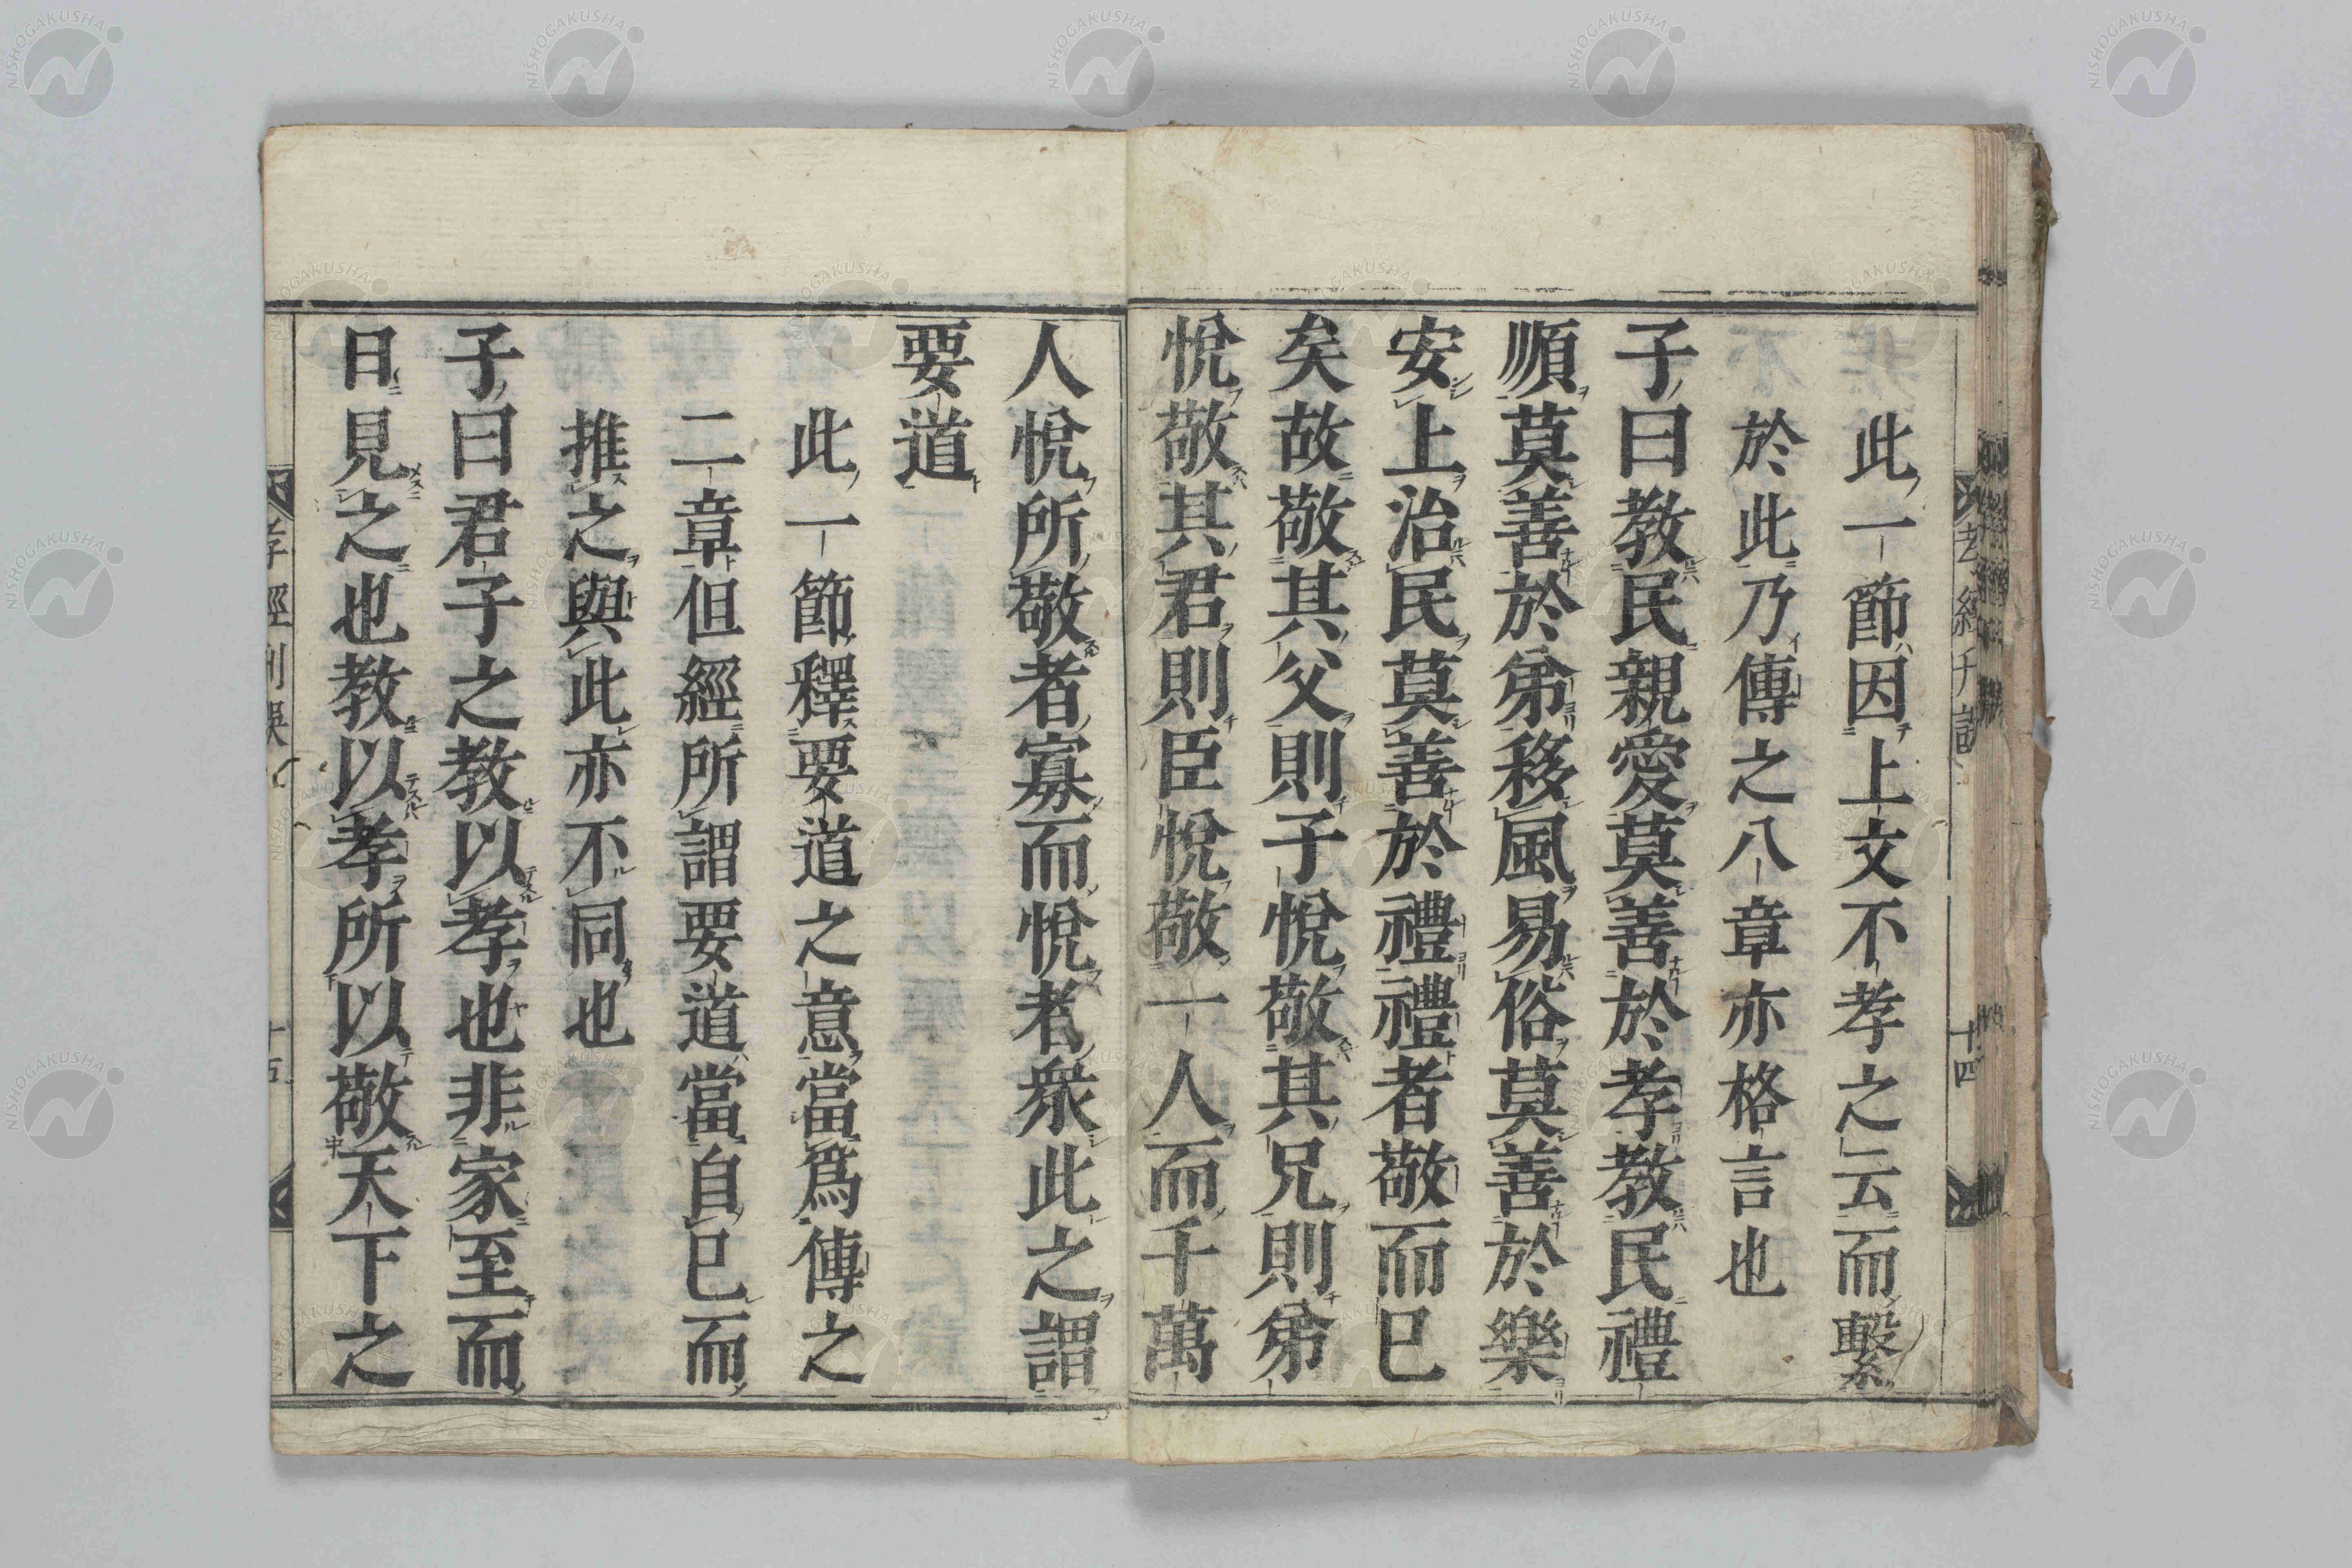 此一節因上文不孝之云而繫
於此乃傳之八章亦格言也
子曰教民親愛莫善於孝教民禮
順莫善於弟移風易俗莫善於樂
安上治民莫善於禮禮者敬而已
矣故敬其父則子悅敬其兄則弟
悅敬其君則臣悅敬一人而千萬
人悅所敬者寡而悅者衆此之謂
要道
此一節釋要道之意當爲傳之
二章但經所謂要道當自已而
推之與此亦不同也
子曰君子之教以孝也非家至而
日見之也教以孝所以敬天下之
十四
NISHOGAKUSHA